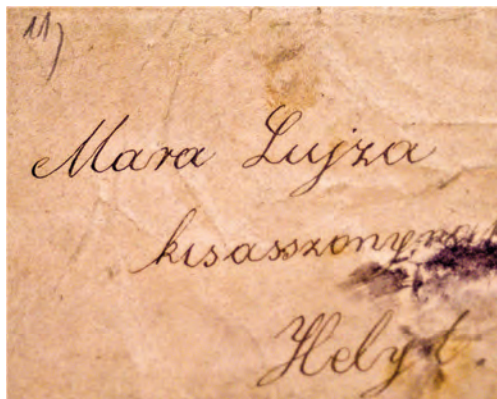 11)
Mara Lujza
kisasszonynak
Helyt.